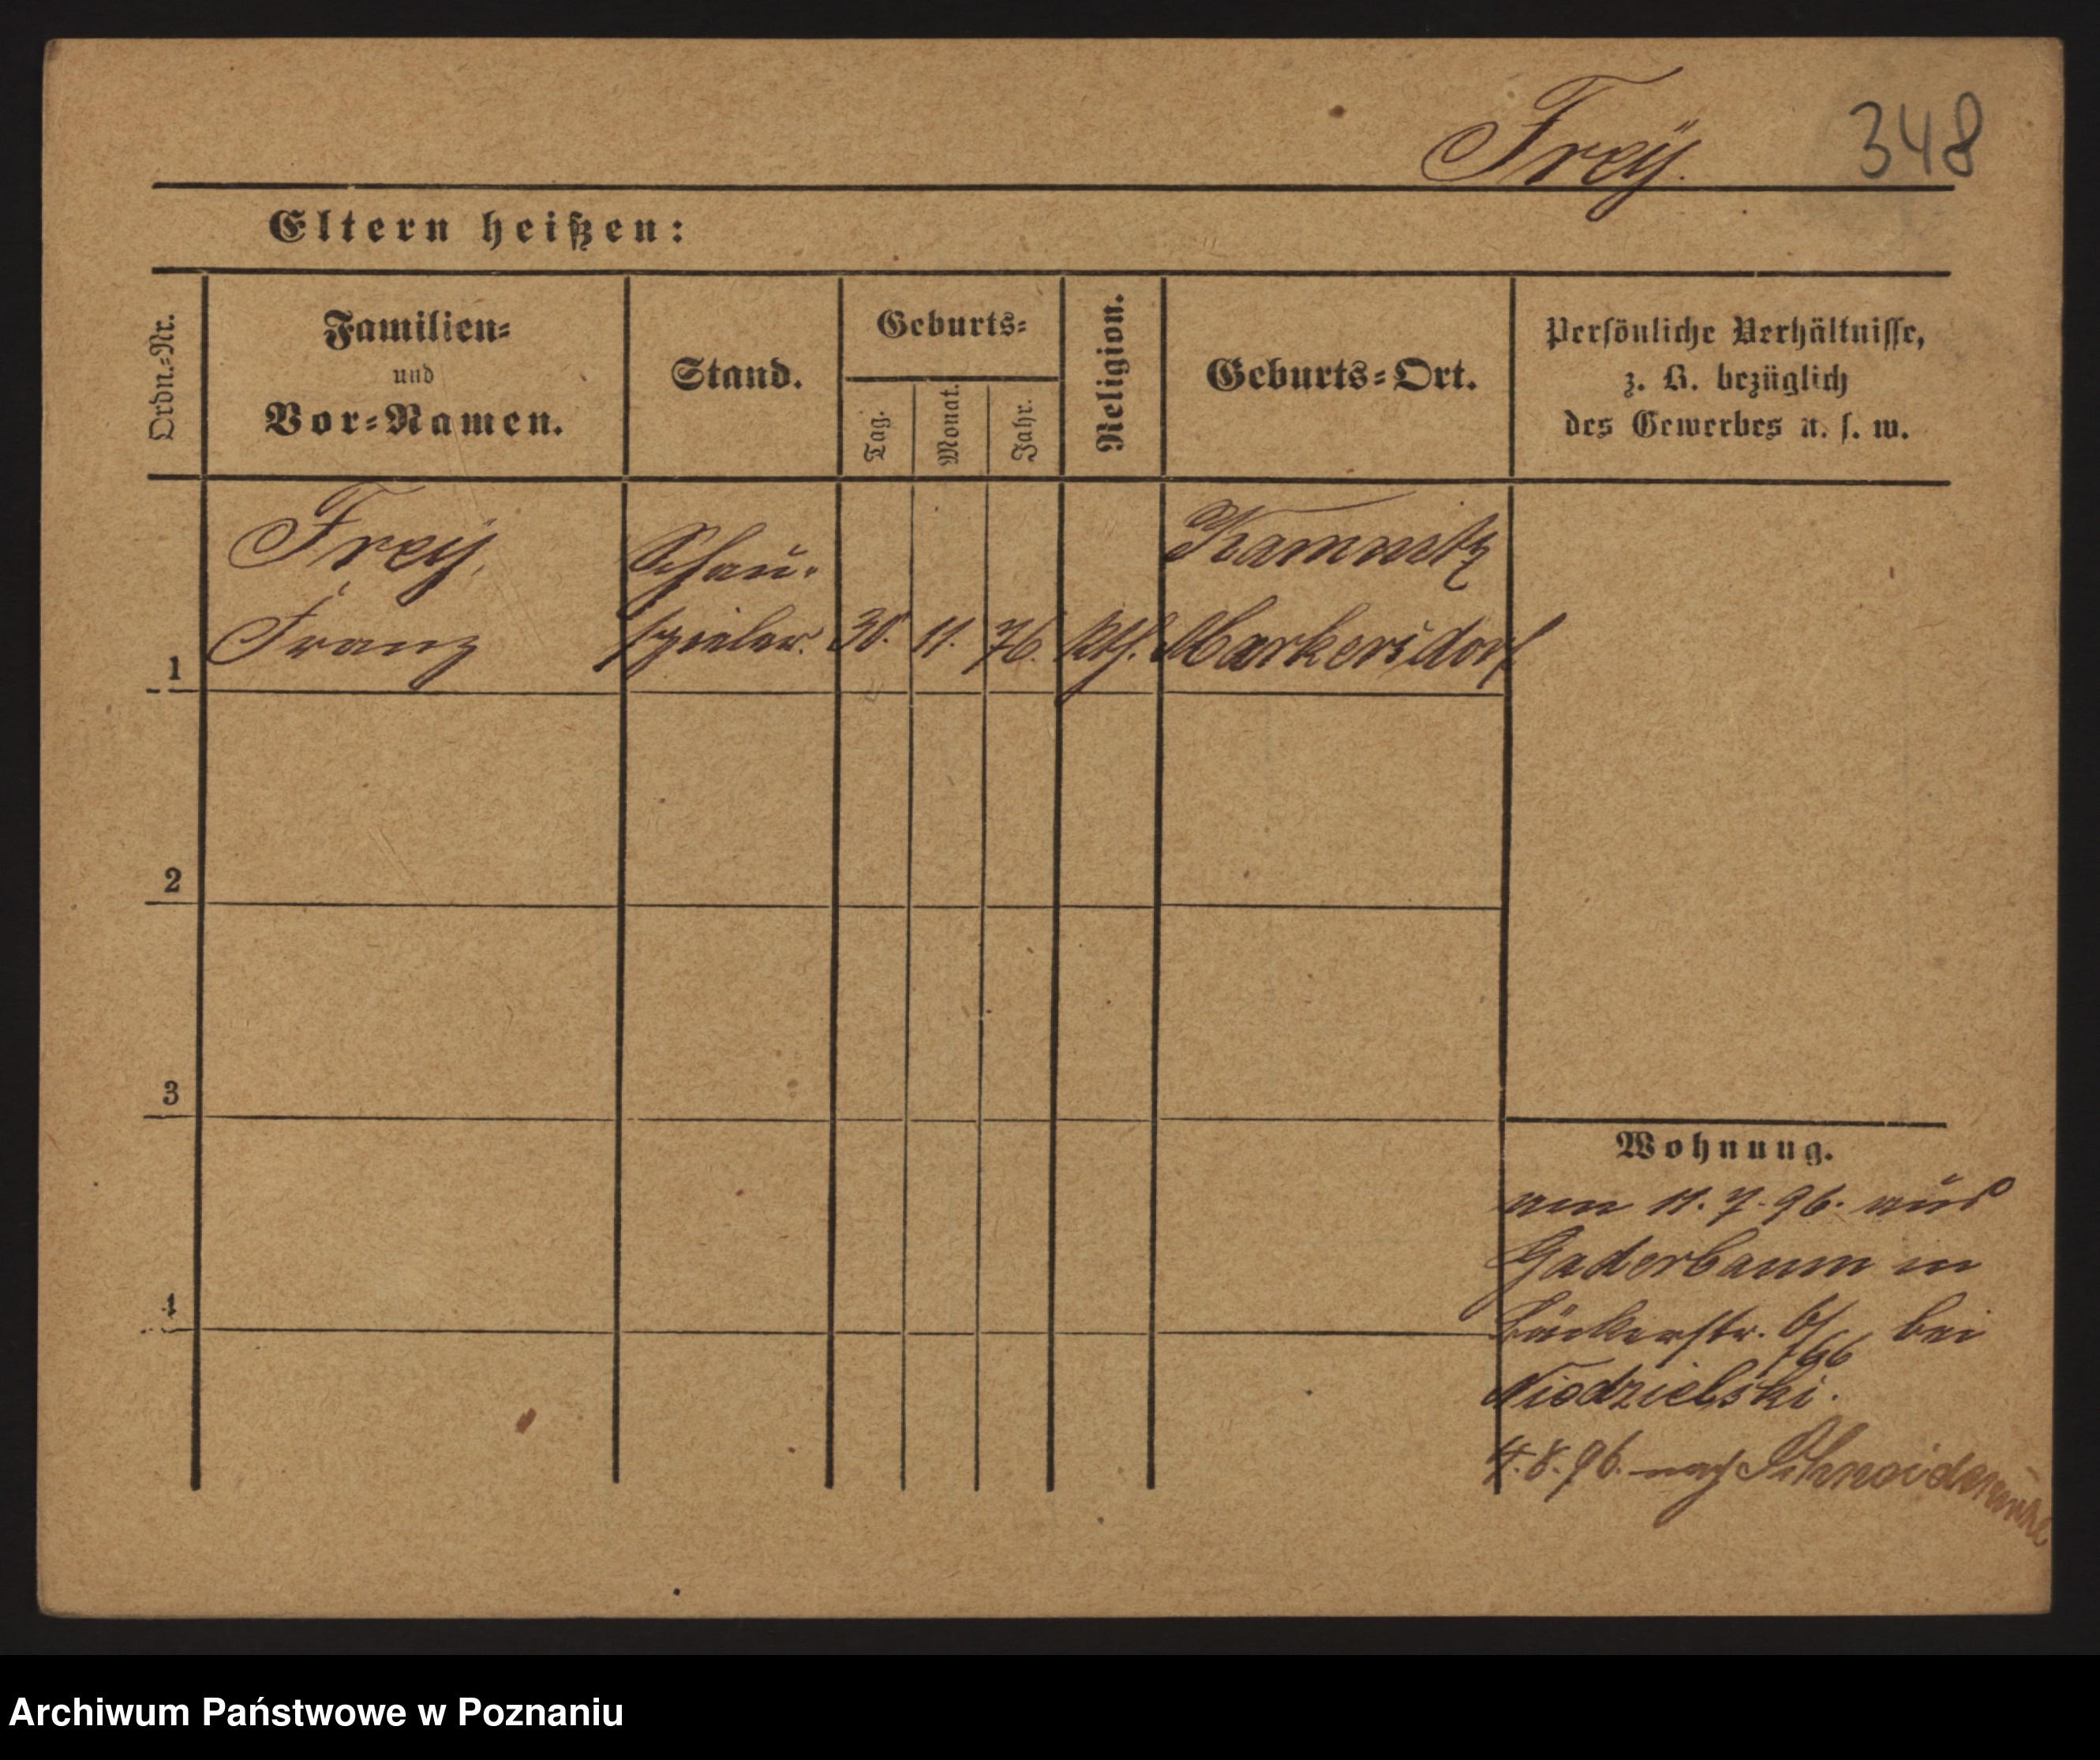 Frey.
348
Eltern heißen:
Ordn.-Nr.
Familien-
und
Vor-Namen.
Stand.
Geburts-
Tag.
Monat.
Jahr.
Religion.
Geburts-Ort.
Persönliche Verhältnisse,
z. B. bezüglich
des Gewerbes u. s. w.
Frey, Schau- Kamnitz
1 Franz spieler. 30. 11. 76. kth. Markersdorf
2
3
Wohnung.
am 11.7.96. aus
Gaderbaum in
Bäckerstr. bei
Niedzielski.
4
4.8.96. nach Schneidemühl
Archiwum Państwowe w Poznaniu